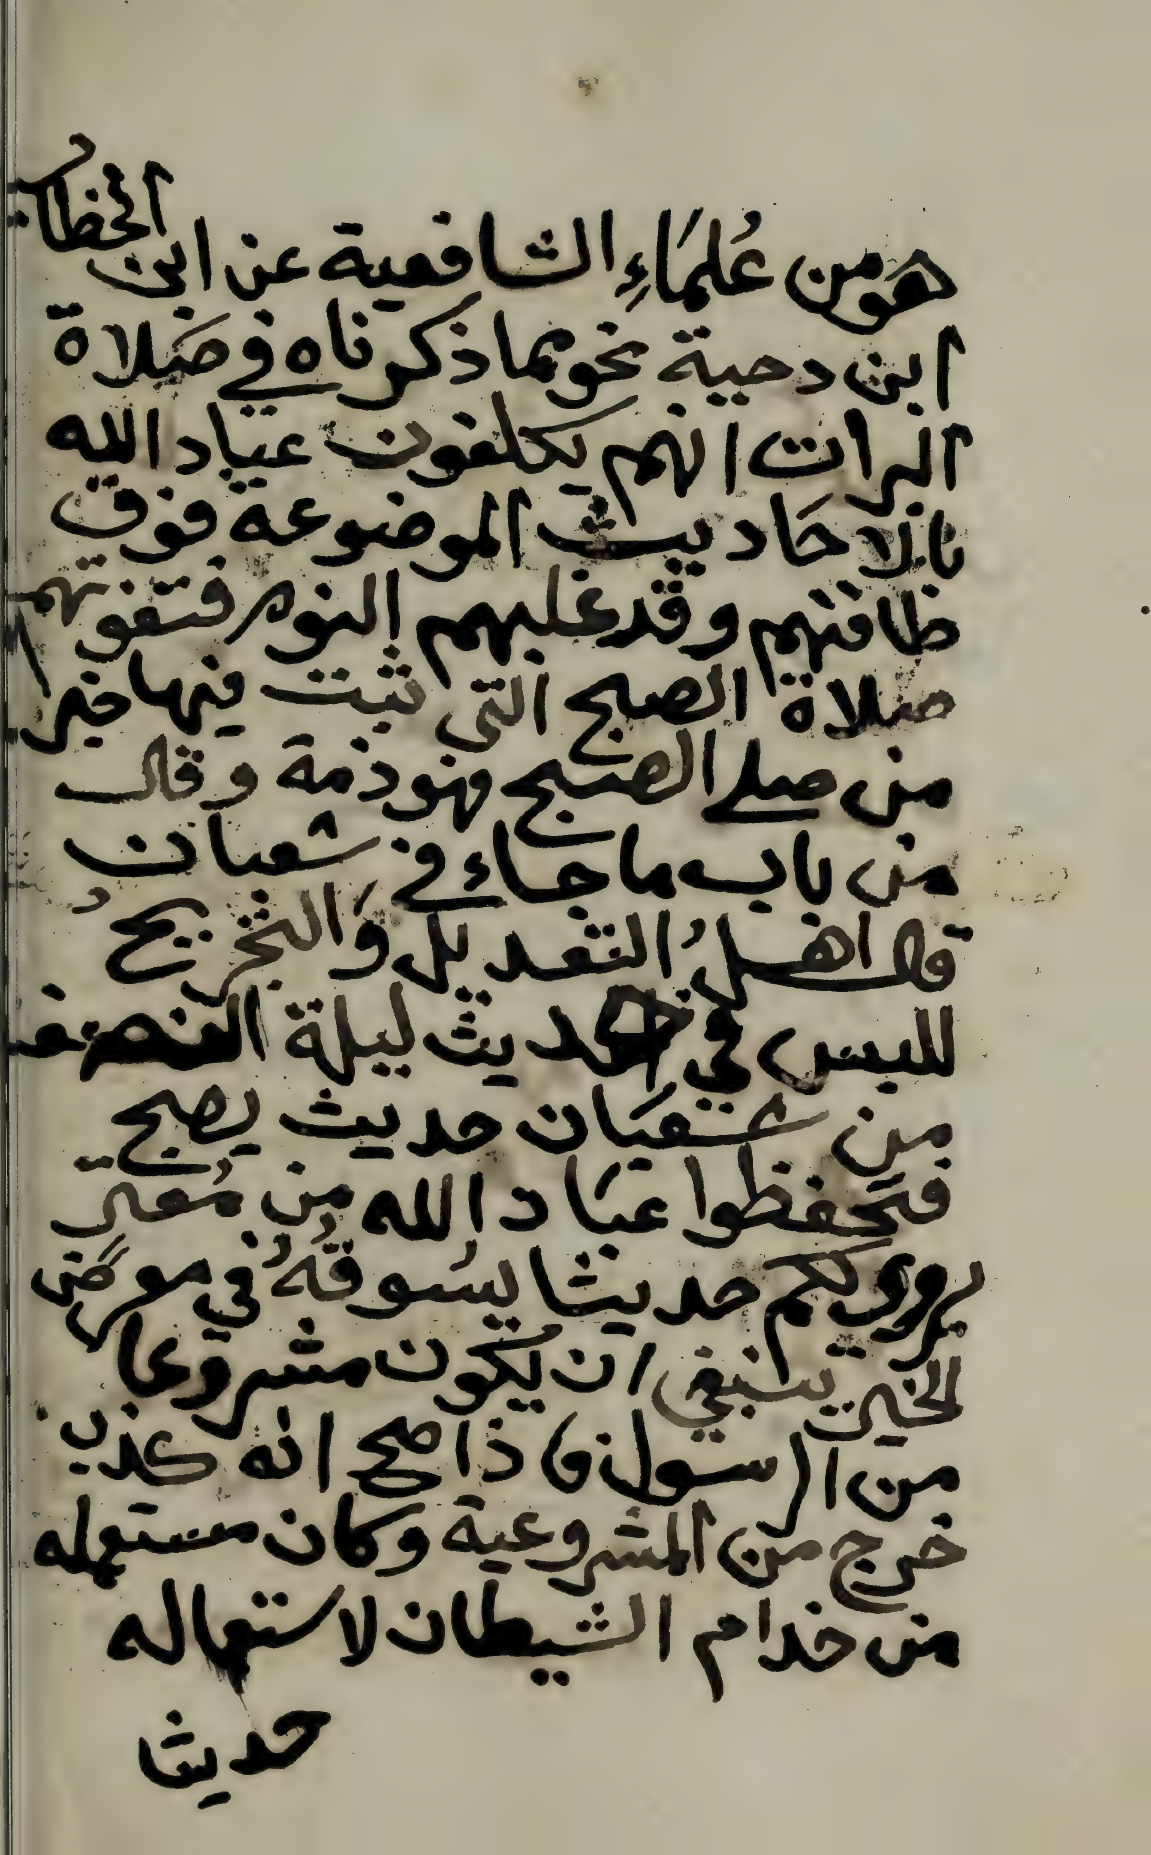 هو من عُلمَاءِ الشافعية عن ابن الخطاب
ابن دحية نحو مما ذكرناه في صَلاة
البرات انهم يكلفون عباد الله
بالاحَاديث الموضوعة فوق
طاقتهم وقد غلبهم النوم فتفوتهم
صلاة الصبح التي ثبت فيها خبر
من صلى الصبح فهو ذمة وقال
من باب ما جاء في شعبان
قال اهلُ التعديل وَالتجريحُ
لليس في حديث ليلة النصف
من شعبَان حديث يصح
فتحفظوا عبَاد الله من مُفترٍ
يروي لكم حديثا يسُوقهُ في معرض
الخير ينبغي ان يكون مشروعا
من الرسول فاذا صح انه كذب
خرج من المشروعية وكان مستعمله
من خدام الشيطان لاستعماله
حديثا